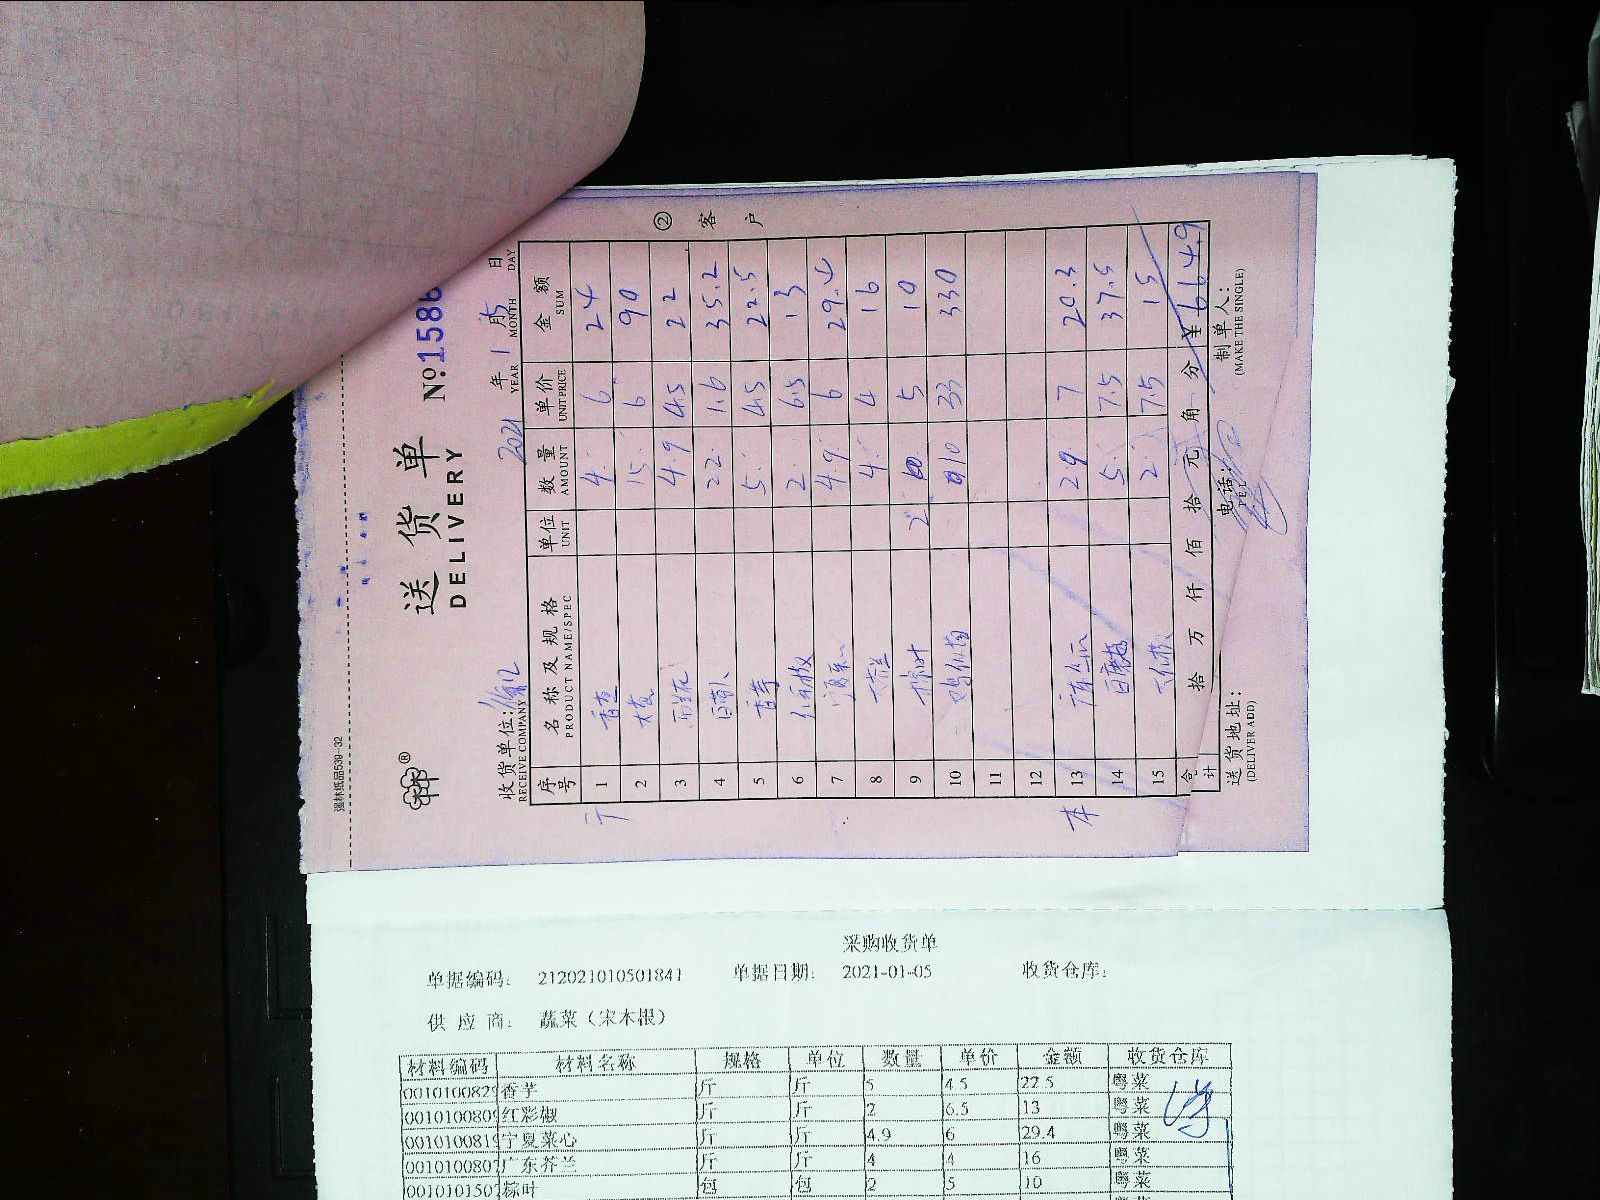 强林纸品539-32
送货单
DELIVERY
№1586
收货单位:
RECEIVE COMPANY
2021 年 1 月 5 日
YEAR MONTH DAY
② 客户
序号 名称及规格 单位 数量 单价 金额
PRODUCT NAME/SPEC UNIT AMOUNT UNIT PRICE SUM
1 香 4 6 24
2 15 6 90
3 4.9 4.5 22
4 22 1.6 35.2
5 香芋 5 4.5 22.5
6 2 6.5 13
7 4.9 6 29.4
8 4 4 16
9 粽叶 2 5 10
10 10 33 330
11
12
13 2.9 7 20.3
14 5 7.5 37.5
15 2 7.5 15
合计 拾 万 仟 佰 拾 元 角 分 ¥ 664.9
送货地址: 电话: 制单人:
(DELIVER ADD) TEL (MAKE THE SINGLE)
采购收货单
单据编码: 212021010501841 单据日期: 2021-01-05 收货仓库:
供应商: 蔬菜(宋木根)
材料编码 材料名称 规格 单位 数量 单价 金额 收货仓库
001010082 香芋 斤 斤 5 4.5 22.5 粤菜
001010080 红彩椒 斤 斤 2 6.5 13 粤菜
001010081 宁夏菜心 斤 斤 4.9 6 29.4 粤菜
001010080 广东芥兰 斤 斤 4 4 16 粤菜
001010150 粽叶 包 包 2 5 10 粤菜